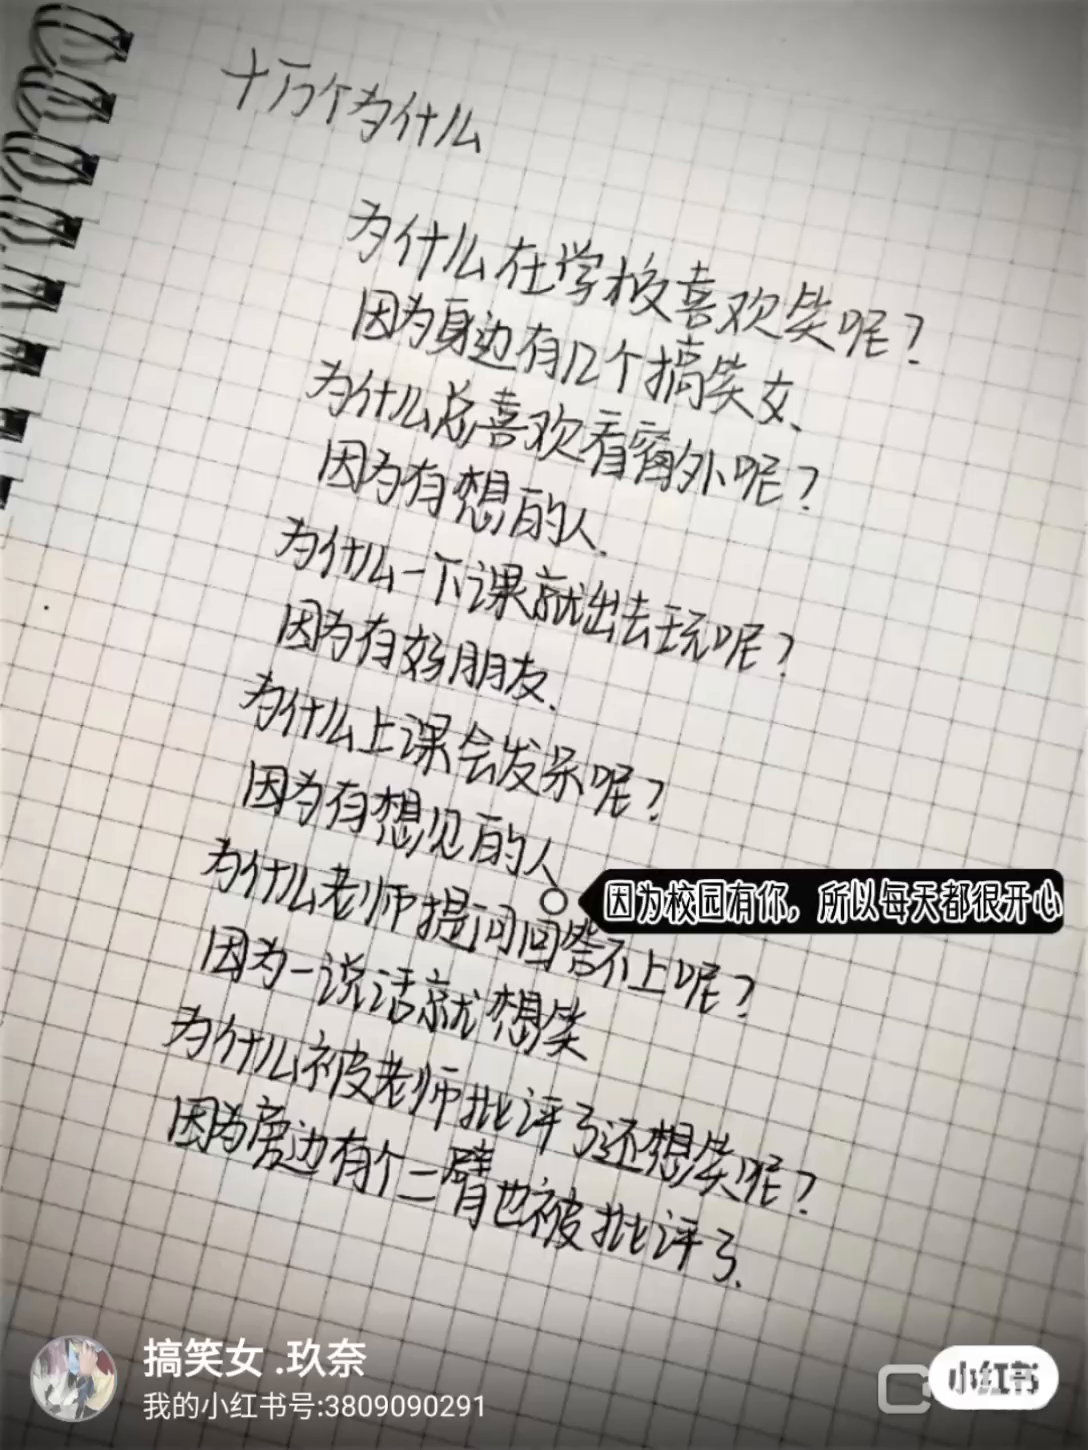 十万个为什么
为什么在学校喜欢笑呢？
因为身边有几个搞笑女、
为什么总喜欢看窗外呢？
因为有想的人.
为什么一下课就出去玩呢？
因为有好朋友.
为什么上课会发呆呢？
因为有想见的人
因为校园有你，所以每天都很开心
为什么老师提问回答不上呢？
因为一说话就想笑
为什么被老师批评了还想笑呢？
因为旁边有个二臂也被批评了.
搞笑女 .玖奈
我的小红书号:3809090291
小红书